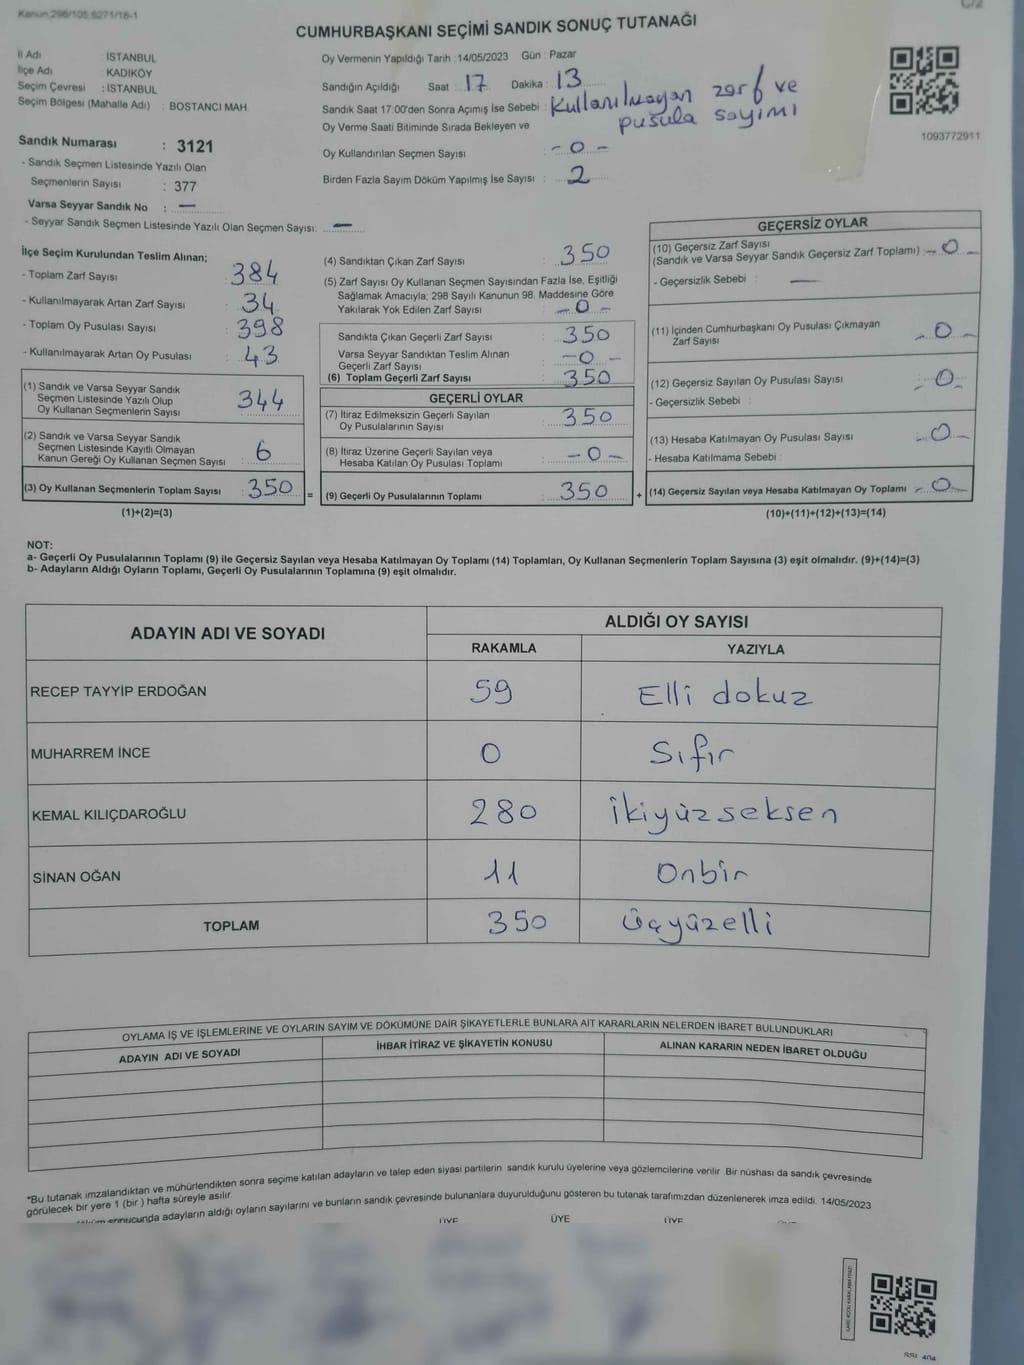 Kanun:298/105,6271/18-1
C/2
CUMHURBAŞKANI SEÇİMİ SANDIK SONUÇ TUTANAĞI
İl Adı : İSTANBUL
İlçe Adı : KADIKÖY
Seçim Çevresi : İSTANBUL
Seçim Bölgesi (Mahalle Adı) : BOSTANCI MAH.
Sandık Numarası : 3121
- Sandık Seçmen Listesinde Yazılı Olan
Seçmenlerin Sayısı : 377
Varsa Seyyar Sandık No : —
- Seyyar Sandık Seçmen Listesinde Yazılı Olan Seçmen Sayısı: —
Oy Vermenin Yapıldığı Tarih :14/05/2023 Gün : Pazar
Sandığın Açıldığı Saat : 17 Dakika : 13
Sandık Saat 17:00'den Sonra Açımış İse Sebebi : Kullanılmayan zarf ve
pusula sayımı
Oy Verme Saati Bitiminde Sırada Bekleyen ve
Oy Kullandırılan Seçmen Sayısı : - 0 -
Birden Fazla Sayım Döküm Yapılmış İse Sayısı : 2
1093772911
İlçe Seçim Kurulundan Teslim Alınan;
- Toplam Zarf Sayısı : 384
- Kullanılmayarak Artan Zarf Sayısı : 34
- Toplam Oy Pusulası Sayısı : 398
- Kullanılmayarak Artan Oy Pusulası : 43
(1) Sandık ve Varsa Seyyar Sandık
Seçmen Listesinde Yazılı Olup
Oy Kullanan Seçmenlerin Sayısı : 344
(2) Sandık ve Varsa Seyyar Sandık
Seçmen Listesinde Kayıtlı Olmayan
Kanun Gereği Oy Kullanan Seçmen Sayısı : 6
(3) Oy Kullanan Seçmenlerin Toplam Sayısı : 350 =
(1)+(2)=(3)
(4) Sandıktan Çıkan Zarf Sayısı : 350
(5) Zarf Sayısı Oy Kullanan Seçmen Sayısından Fazla İse, Eşitliği
Sağlamak Amacıyla; 298 Sayılı Kanunun 98. Maddesine Göre
Yakılarak Yok Edilen Zarf Sayısı : - 0 -
Sandıkta Çıkan Geçerli Zarf Sayısı : 350
Varsa Seyyar Sandıktan Teslim Alınan
Geçerli Zarf Sayısı : - 0 -
(6) Toplam Geçerli Zarf Sayısı : 350
GEÇERLİ OYLAR
(7) İtiraz Edilmeksizin Geçerli Sayılan
Oy Pusulalarının Sayısı : 350
(8) İtiraz Üzerine Geçerli Sayılan veya
Hesaba Katılan Oy Pusulası Toplamı : - 0 -
(9) Geçerli Oy Pusulalarının Toplamı : 350 +
GEÇERSİZ OYLAR
(10) Geçersiz Zarf Sayısı
(Sandık ve Varsa Seyyar Sandık Geçersiz Zarf Toplamı) : - 0 -
- Geçersizlik Sebebi : —
(11) İçinden Cumhurbaşkanı Oy Pusulası Çıkmayan
Zarf Sayısı : - 0 -
(12) Geçersiz Sayılan Oy Pusulası Sayısı : - 0 -
- Geçersizlik Sebebi :
(13) Hesaba Katılmayan Oy Pusulası Sayısı : - 0 -
- Hesaba Katılmama Sebebi :
(14) Geçersiz Sayılan veya Hesaba Katılmayan Oy Toplamı - 0 -
(10)+(11)+(12)+(13)=(14)
NOT:
a- Geçerli Oy Pusulalarının Toplamı (9) ile Geçersiz Sayılan veya Hesaba Katılmayan Oy Toplamı (14) Toplamları, Oy Kullanan Seçmenlerin Toplam Sayısına (3) eşit olmalıdır. (9)+(14)=(3)
b- Adayların Aldığı Oyların Toplamı, Geçerli Oy Pusulalarının Toplamına (9) eşit olmalıdır.
ADAYIN ADI VE SOYADI
ALDIĞI OY SAYISI
RAKAMLA YAZIYLA
RECEP TAYYİP ERDOĞAN 59 Elli dokuz
MUHARREM İNCE 0 Sıfır
KEMAL KILIÇDAROĞLU 280 İkiyüzseksen
SİNAN OĞAN 11 Onbir
TOPLAM 350 Üçyüzelli
OYLAMA İŞ VE İŞLEMLERİNE VE OYLARIN SAYIM VE DÖKÜMÜNE DAİR ŞİKAYETLERLE BUNLARA AİT KARARLARIN NELERDEN İBARET BULUNDUKLARI
ADAYIN ADI VE SOYADI İHBAR İTİRAZ VE ŞİKAYETİN KONUSU ALINAN KARARIN NEDEN İBARET OLDUĞU
*Bu tutanak imzalandıktan ve mühürlendikten sonra seçime katılan adayların ve talep eden siyasi partilerin sandık kurulu üyelerine veya gözlemcilerine verilir. Bir nüshası da sandık çevresinde
görülecek bir yere 1 (bir ) hafta süreyle asılır.
sonucunda adayların aldığı oyların sayılarını ve bunların sandık çevresinde bulunanlara duyurulduğunu gösteren bu tutanak tarafımızdan düzenlenerek imza edildi. 14/05/2023
ÜYE ÜYE ÜYE